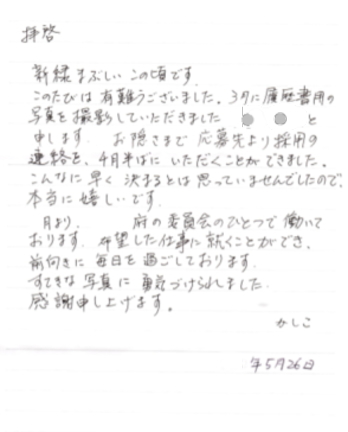 拝啓
新緑まぶしいこの頃です.
このたびは有難うございました。3月に履歴書用の
写真を撮影していただきました ● ● と
申します. お隠さまで 応募先より採用の
連絡を、4月半ばにいただくことができました。
こんなに早く決まるとは思っていませんでしたので、
本当に嬉しいです.
月より、 府の委員会のひとつで働いて
おります. 希望した仕事に就くことができ、
前向きに毎日を過ごしております.
すてきな写真に勇気づけられました.
感謝申し上げます。
かしこ
年5月26日